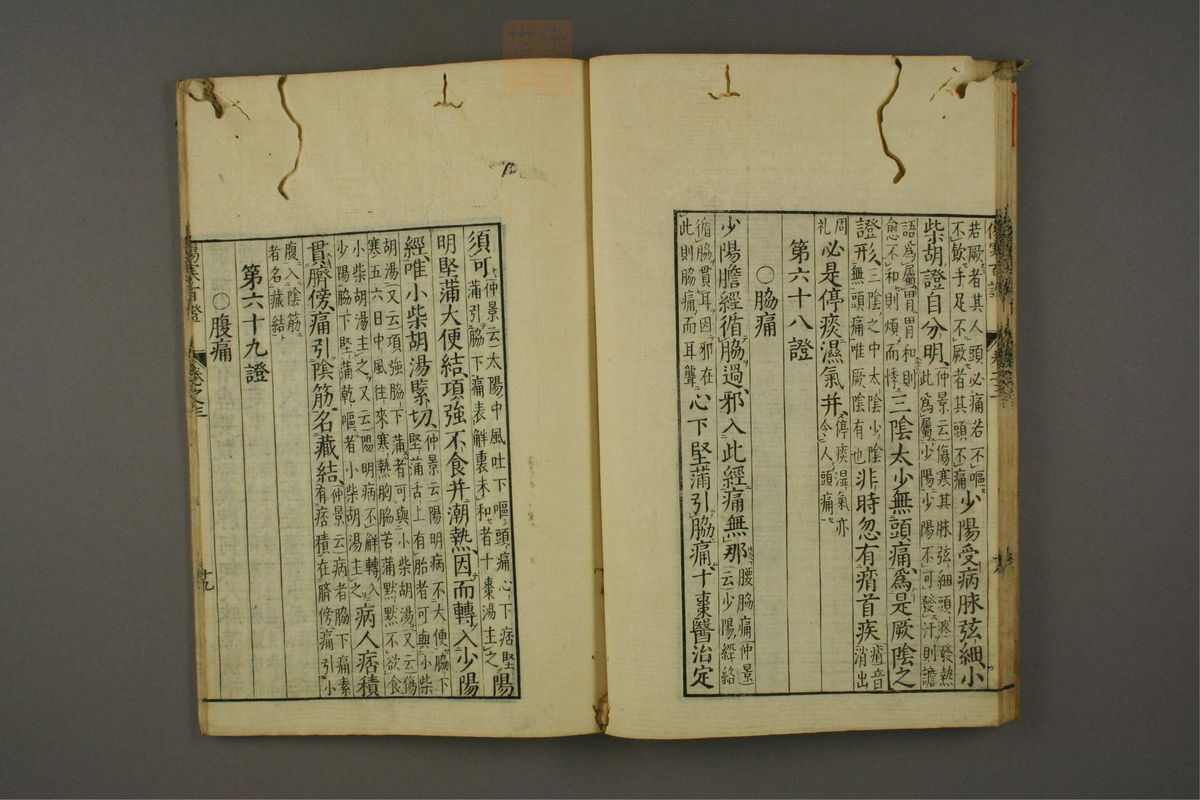 若厥者其人頭必痛若不嘔
不飲手足不厥者其頭不痛
少陽受病脉弦細小
柴胡證自分明
仲景云傷寒其脉弦細頭疼發熱
此爲屬少陽少陽不可發汗則譫
語爲屬胃胃和則
愈不和則煩而悸
三陰太少無頭痛爲是厥陰之
證形
三陰之中太陰少陰
無頭痛唯厥陰有也
非時忽有痟首疾
痟音
消出
周
礼
必是停痰濕氣并
停痰濕氣亦
令人頭痛
第六十八證
○脇痛
少陽膽經循脇過邪入此經痛無那
腰脇痛仲景
云少陽經絡
循脇貫耳因邪在
此則脇痛而耳聾
心下堅滿引脇痛十棗醫治定
須可
仲景云太陽中風吐下嘔頭痛心下痞堅
滿引脇下痛表解裏未和者十棗湯主之
陽
明堅滿大便結項強不食并潮熱因而轉入少陽
經唯小柴胡湯緊切
仲景云陽明病不大便脇下
堅滿舌上有胎者可與小柴
胡湯又云項強脇下滿者可與小柴胡湯又云傷
寒五六日中風往來寒熱胸脇苦滿默默不欲食
小柴胡湯主之又云陽明病不解轉入
少陽脇下堅滿乾嘔者小柴胡湯主之
病人痞積
貫臍傍痛引陰筋名藏結
仲景云病者脇下痛素
有痞積在臍傍痛引小
腹入陰筋
者名藏結
第六十九證
○腹痛
傷寒百證
卷之三
十九